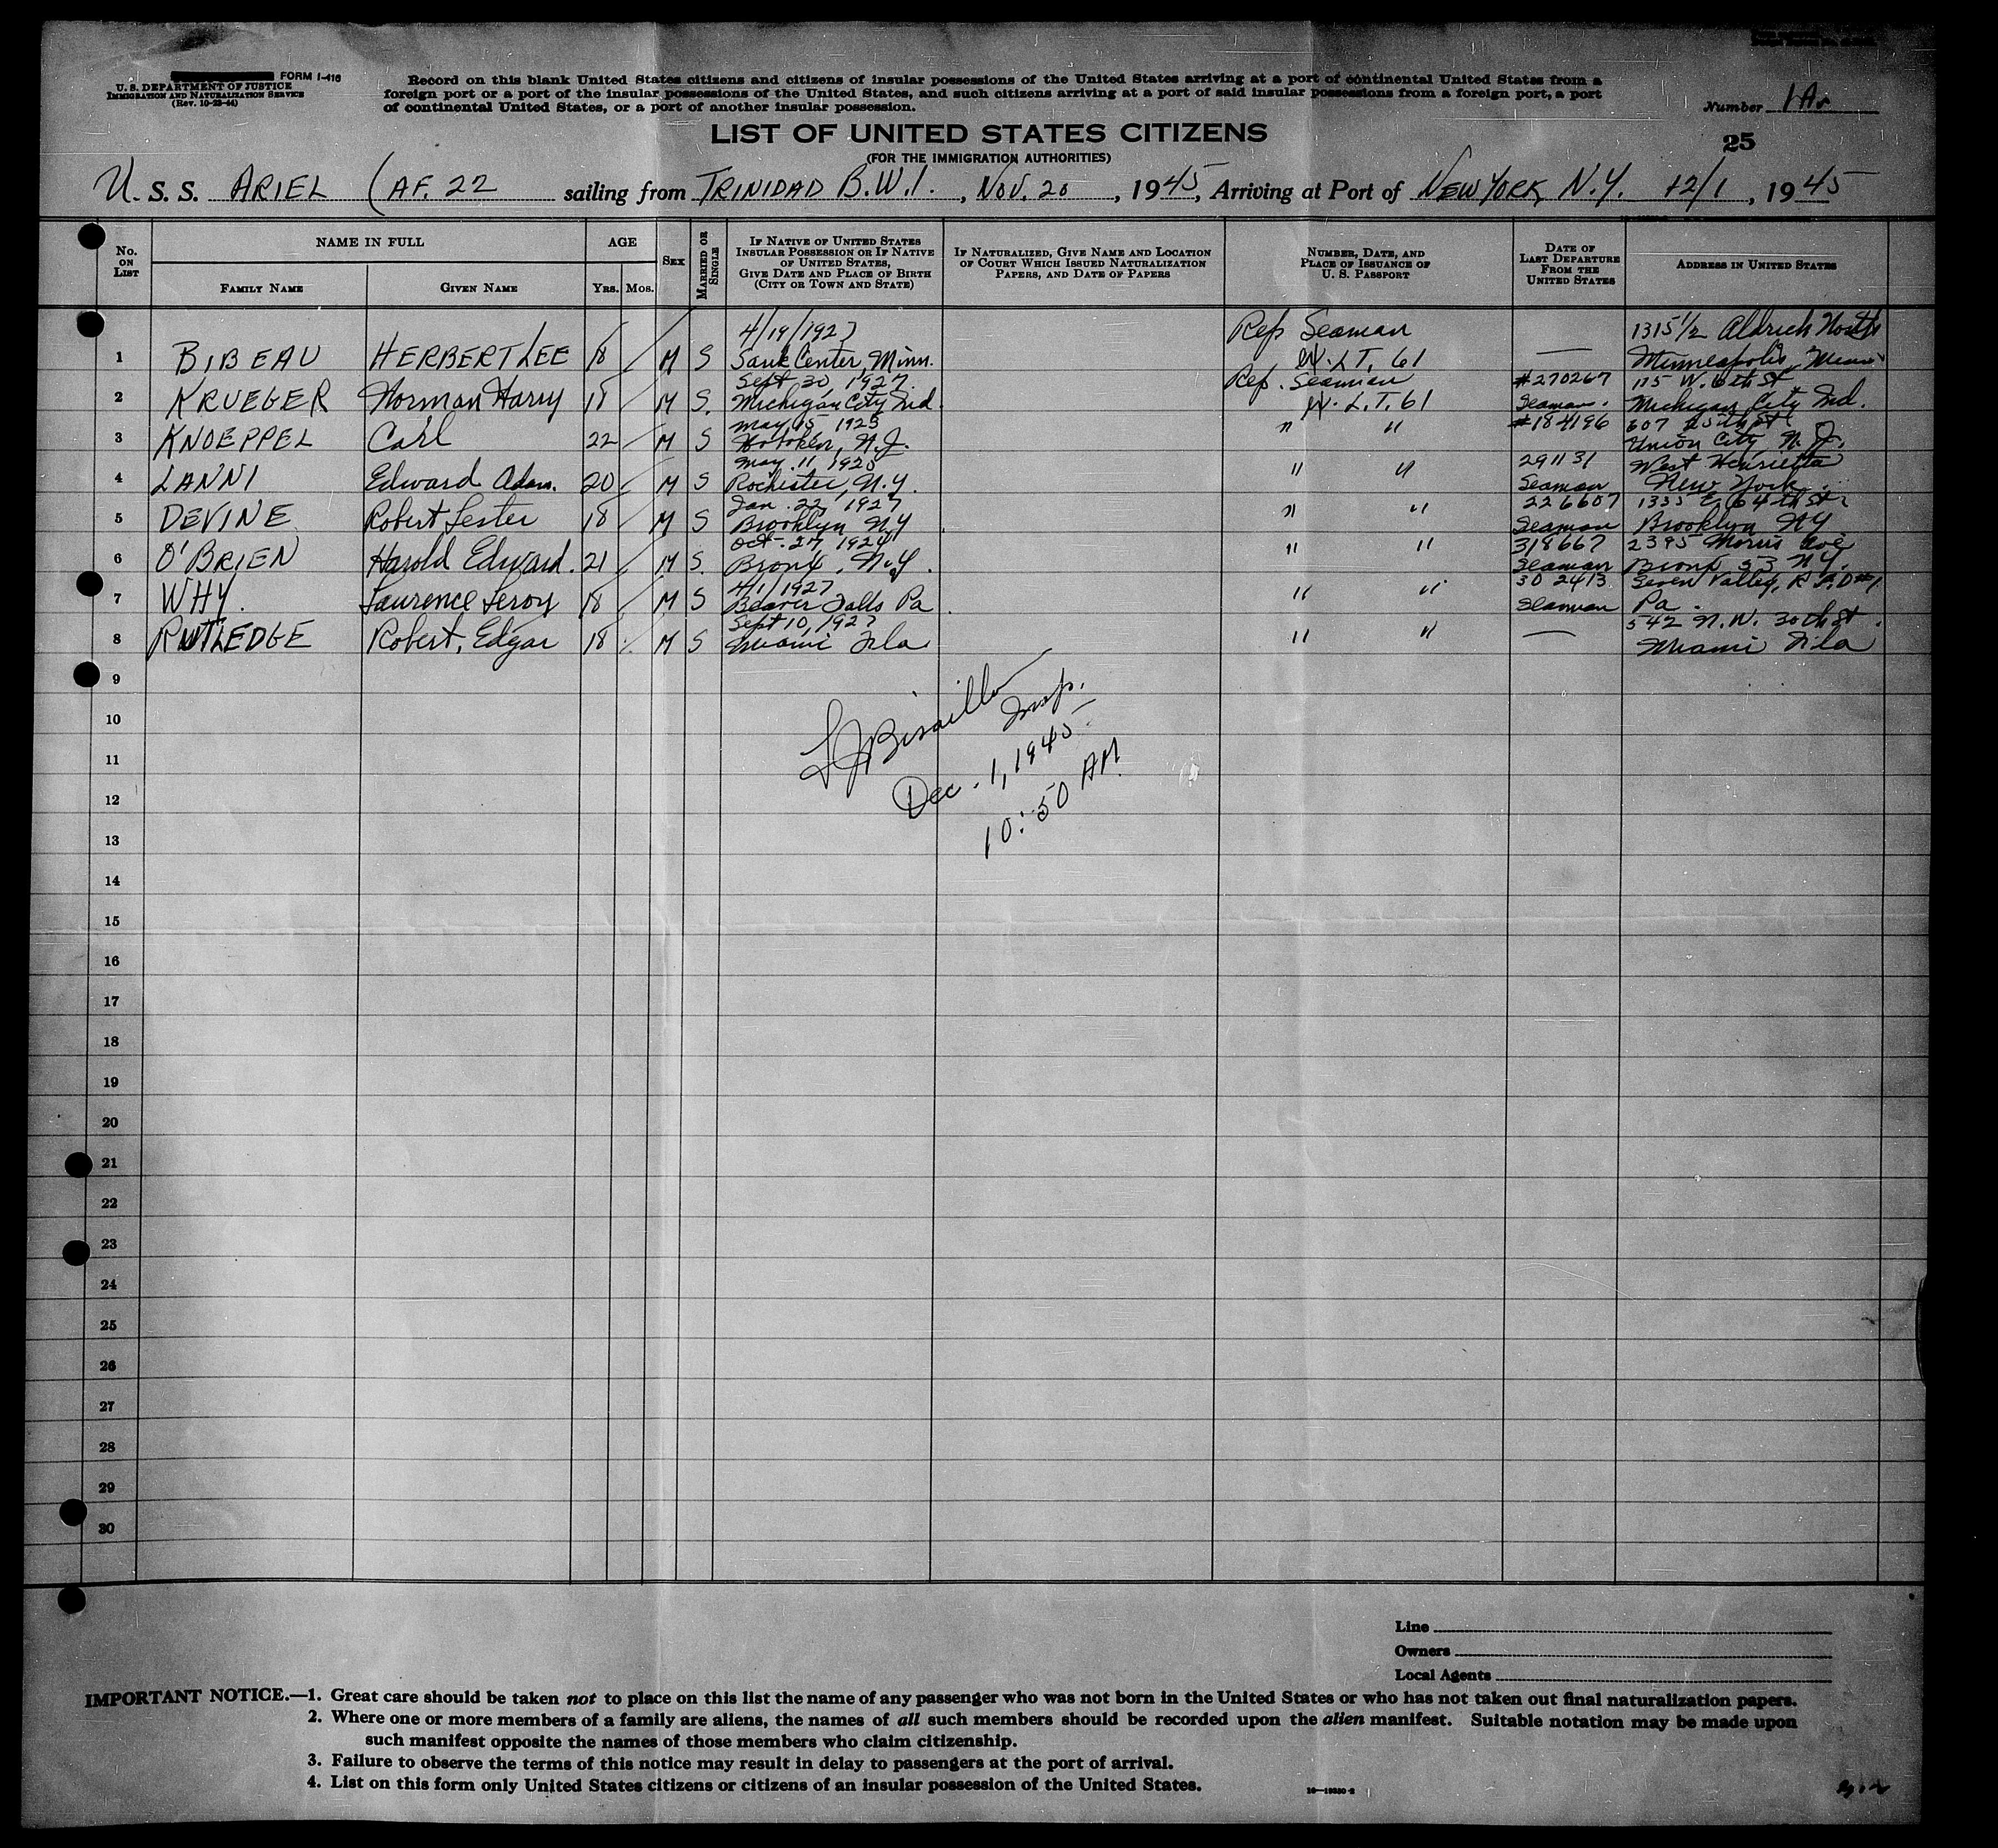 FORM I-416
U. S. DEPARTMENT OF JUSTICE
IMMIGRATION AND NATURALIZATION SERVICE
(Rev. 10-23-44)
Record on this blank United States citizens and citizens of insular possessions of the United States arriving at a port of continental United States from a
foreign port or a port of the insular possessions of the United States, and such citizens arriving at a port of said insular possessions from a foreign port, a port
of continental United States, or a port of another insular possession.
Number 1A
LIST OF UNITED STATES CITIZENS
25
(FOR THE IMMIGRATION AUTHORITIES)
U. S. S. ARIEL (AF. 22 sailing from TRINIDAD B.W.I., NOV. 20, 1945, Arriving at Port of NEW YORK, N.Y. 12/1, 1945
No. ON LIST
NAME IN FULL
FAMILY NAME
GIVEN NAME
AGE
YRS. MOS.
SEX
MARRIED OR SINGLE
IF NATIVE OF UNITED STATES
INSULAR POSSESSION OR IF NATIVE
OF UNITED STATES,
GIVE DATE AND PLACE OF BIRTH
(CITY OR TOWN AND STATE)
IF NATURALIZED, GIVE NAME AND LOCATION
OF COURT WHICH ISSUED NATURALIZATION
PAPERS, AND DATE OF PAPERS
NUMBER, DATE, AND
PLACE OF ISSUANCE OF
U. S. PASSPORT
DATE OF
LAST DEPARTURE
FROM THE
UNITED STATES
ADDRESS IN UNITED STATES
4/19/1927 Rep Seaman 1315 1/2 Aldrich North
1 BIBEAU HERBERT LEE 18 M S Sauk Center, Minn. L.T. 61 — Minneapolis, Minn
Sept 30, 1927 Rep. Seaman #270267 115 W. 6th St
2 KRUEGER Norman Harry 18 M S. Michigan City Ind. L.T. 61 Seaman. Michigan City Ind.
May 15 1923 " " #184196 607
3 KNOEPPEL Carl 22 M S Hoboken, N.J. Union City, N. J.
May. 11 1925 " " 291131 West Henrietta
4 LANNI Edward Adam. 20 M S Rochester, N.Y. Seaman New York
Jan. 22, 1927 " " 226607 1335 E. 64th St
5 DEVINE Robert Lester 18 M S Brooklyn N.Y. Seaman Brooklyn NY
Oct. 27, 1924 " " 318667 2395 Morris Ave
6 O'BRIEN Harold Edward. 21 M S. Bronx, N.Y. Seaman Bronx 53 N.Y.
4/1/1927 " " 302413 Seven Valley, R.F.D #1
7 WHY. Laurence Leroy 18 M S Beaver Falls Pa Seaman Pa.
Sept 10, 1927 " " 542 N.W. 30th St.
8 RUTLEDGE Robert, Edgar 18 M S Miami Fla — Miami Fla
9
Insp.
10
Dec. 1, 1945
11
10:50 AM
12
13
14
15
16
17
18
19
20
21
22
23
24
25
26
27
28
29
30
Line
Owners
Local Agents
IMPORTANT NOTICE.—1. Great care should be taken not to place on this list the name of any passenger who was not born in the United States or who has not taken out final naturalization papers.
2. Where one or more members of a family are aliens, the names of all such members should be recorded upon the alien manifest. Suitable notation may be made upon
such manifest opposite the names of those members who claim citizenship.
3. Failure to observe the terms of this notice may result in delay to passengers at the port of arrival.
4. List on this form only United States citizens or citizens of an insular possession of the United States.